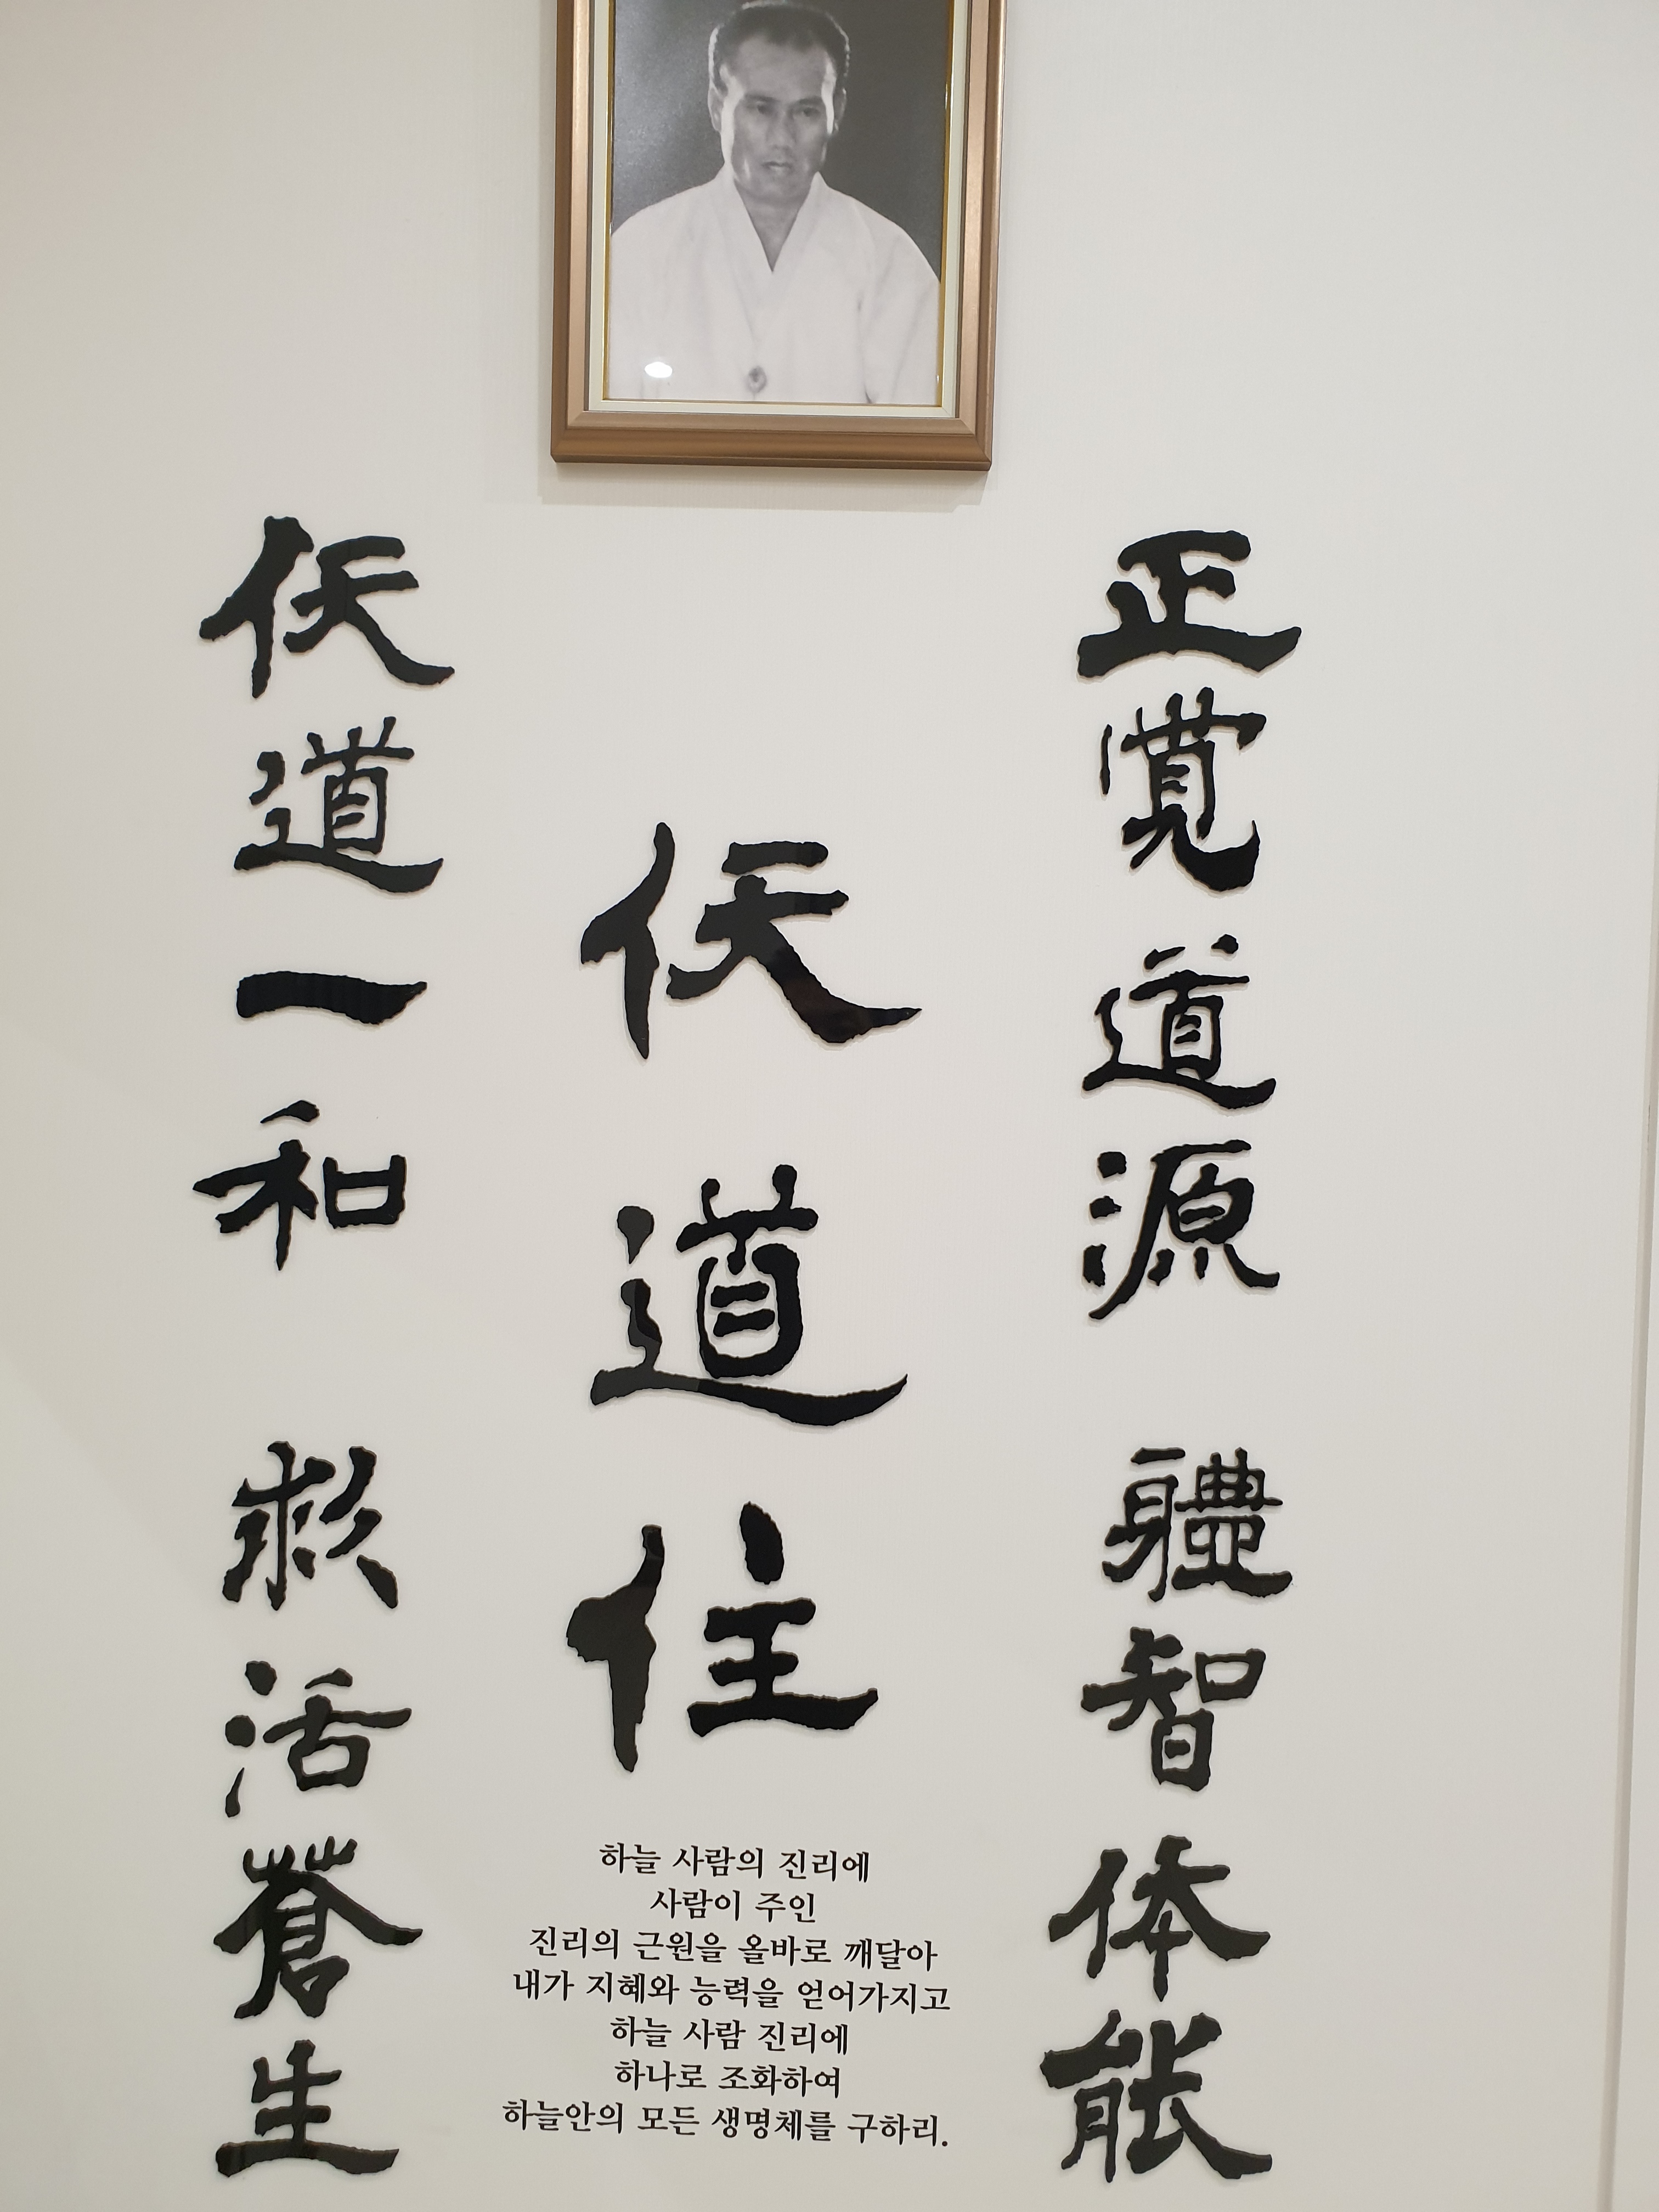 正覺道源 軆智体能
仸道住
仸道一和 救活蒼生
하늘 사람의 진리에
사람이 주인
진리의 근원을 올바로 깨달아
내가 지혜와 능력을 얻어가지고
하늘 사람 진리에
하나로 조화하여
하늘안의 모든 생명체를 구하리.